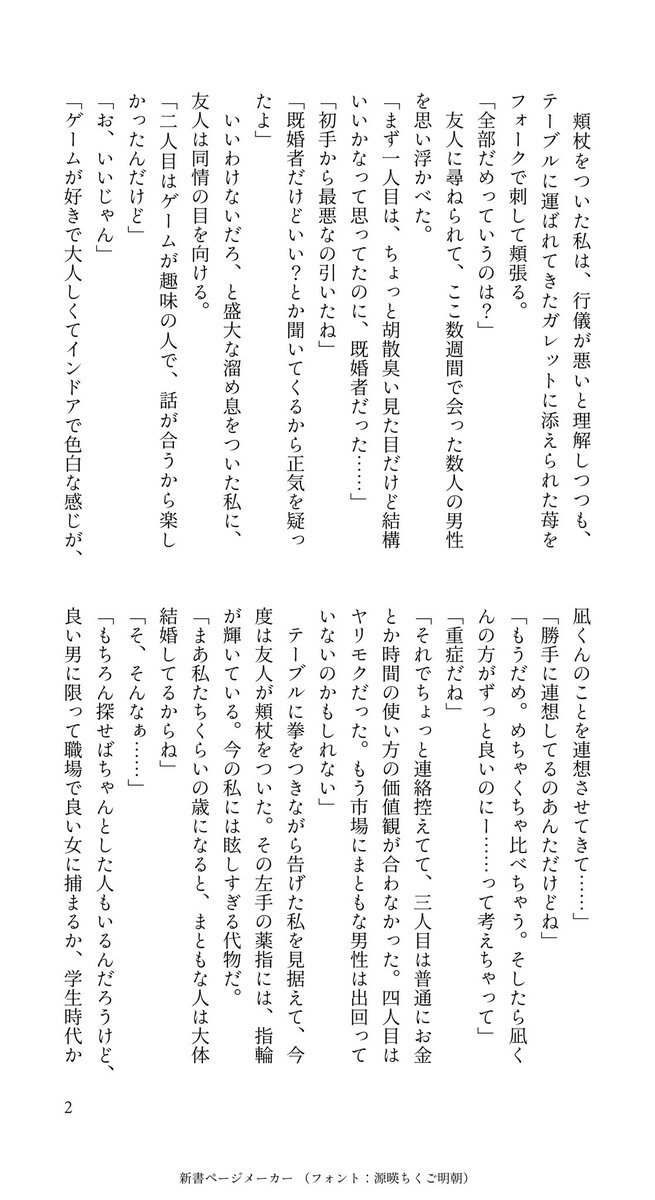 頬杖をついた私は、行儀が悪いと理解しつつも、
テーブルに運ばれてきたガレットに添えられた苺を
フォークで刺して頬張る。
「全部だめっていうのは？」
　友人に尋ねられて、ここ数週間で会った数人の男性
を思い浮かべた。
「まず一人目は、ちょっと胡散臭い見た目だけど結構
いいかなって思ってたのに、既婚者だった……」
「初手から最悪なの引いたね」
「既婚者だけどいい？とか聞いてくるから正気を疑っ
たよ」
　いいわけないだろ、と盛大な溜め息をついた私に、
友人は同情の目を向ける。
「二人目はゲームが趣味の人で、話が合うから楽し
かったんだけど」
「お、いいじゃん」
「ゲームが好きで大人しくてインドアで色白な感じが、
凪くんのことを連想させてきて……」
「勝手に連想してるのあんただけどね」
「もうだめ。めちゃくちゃ比べちゃう。そしたら凪く
んの方がずっと良いのにー……って考えちゃって」
「重症だね」
「それでちょっと連絡控えてて、三人目は普通にお金
とか時間の使い方の価値観が合わなかった。四人目は
ヤリモクだった。もう市場にまともな男性は出回って
いないのかもしれない」
　テーブルに拳をつきながら告げた私を見据えて、今
度は友人が頬杖をついた。その左手の薬指には、指輪
が輝いている。今の私には眩しすぎる代物だ。
「まあ私たちくらいの歳になると、まともな人は大体
結婚してるからね」
「そ、そんなぁ……」
「もちろん探せばちゃんとした人もいるんだろうけど、
良い男に限って職場で良い女に捕まるか、学生時代か
2
新書ページメーカー（フォント：源暎ちくご明朝）